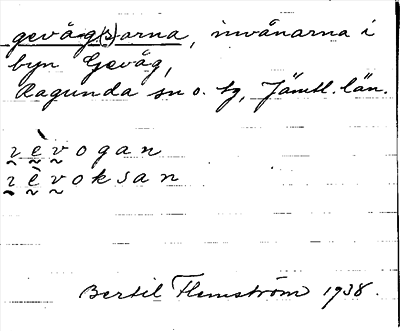 gevåg(s)arna, invånarna i
byn Gevåg,
Ragunda sn o. tg, Jämtl. län.
ɪ è v o g a n
ɪ è v o k s a n
Bertil Flemström 1938.